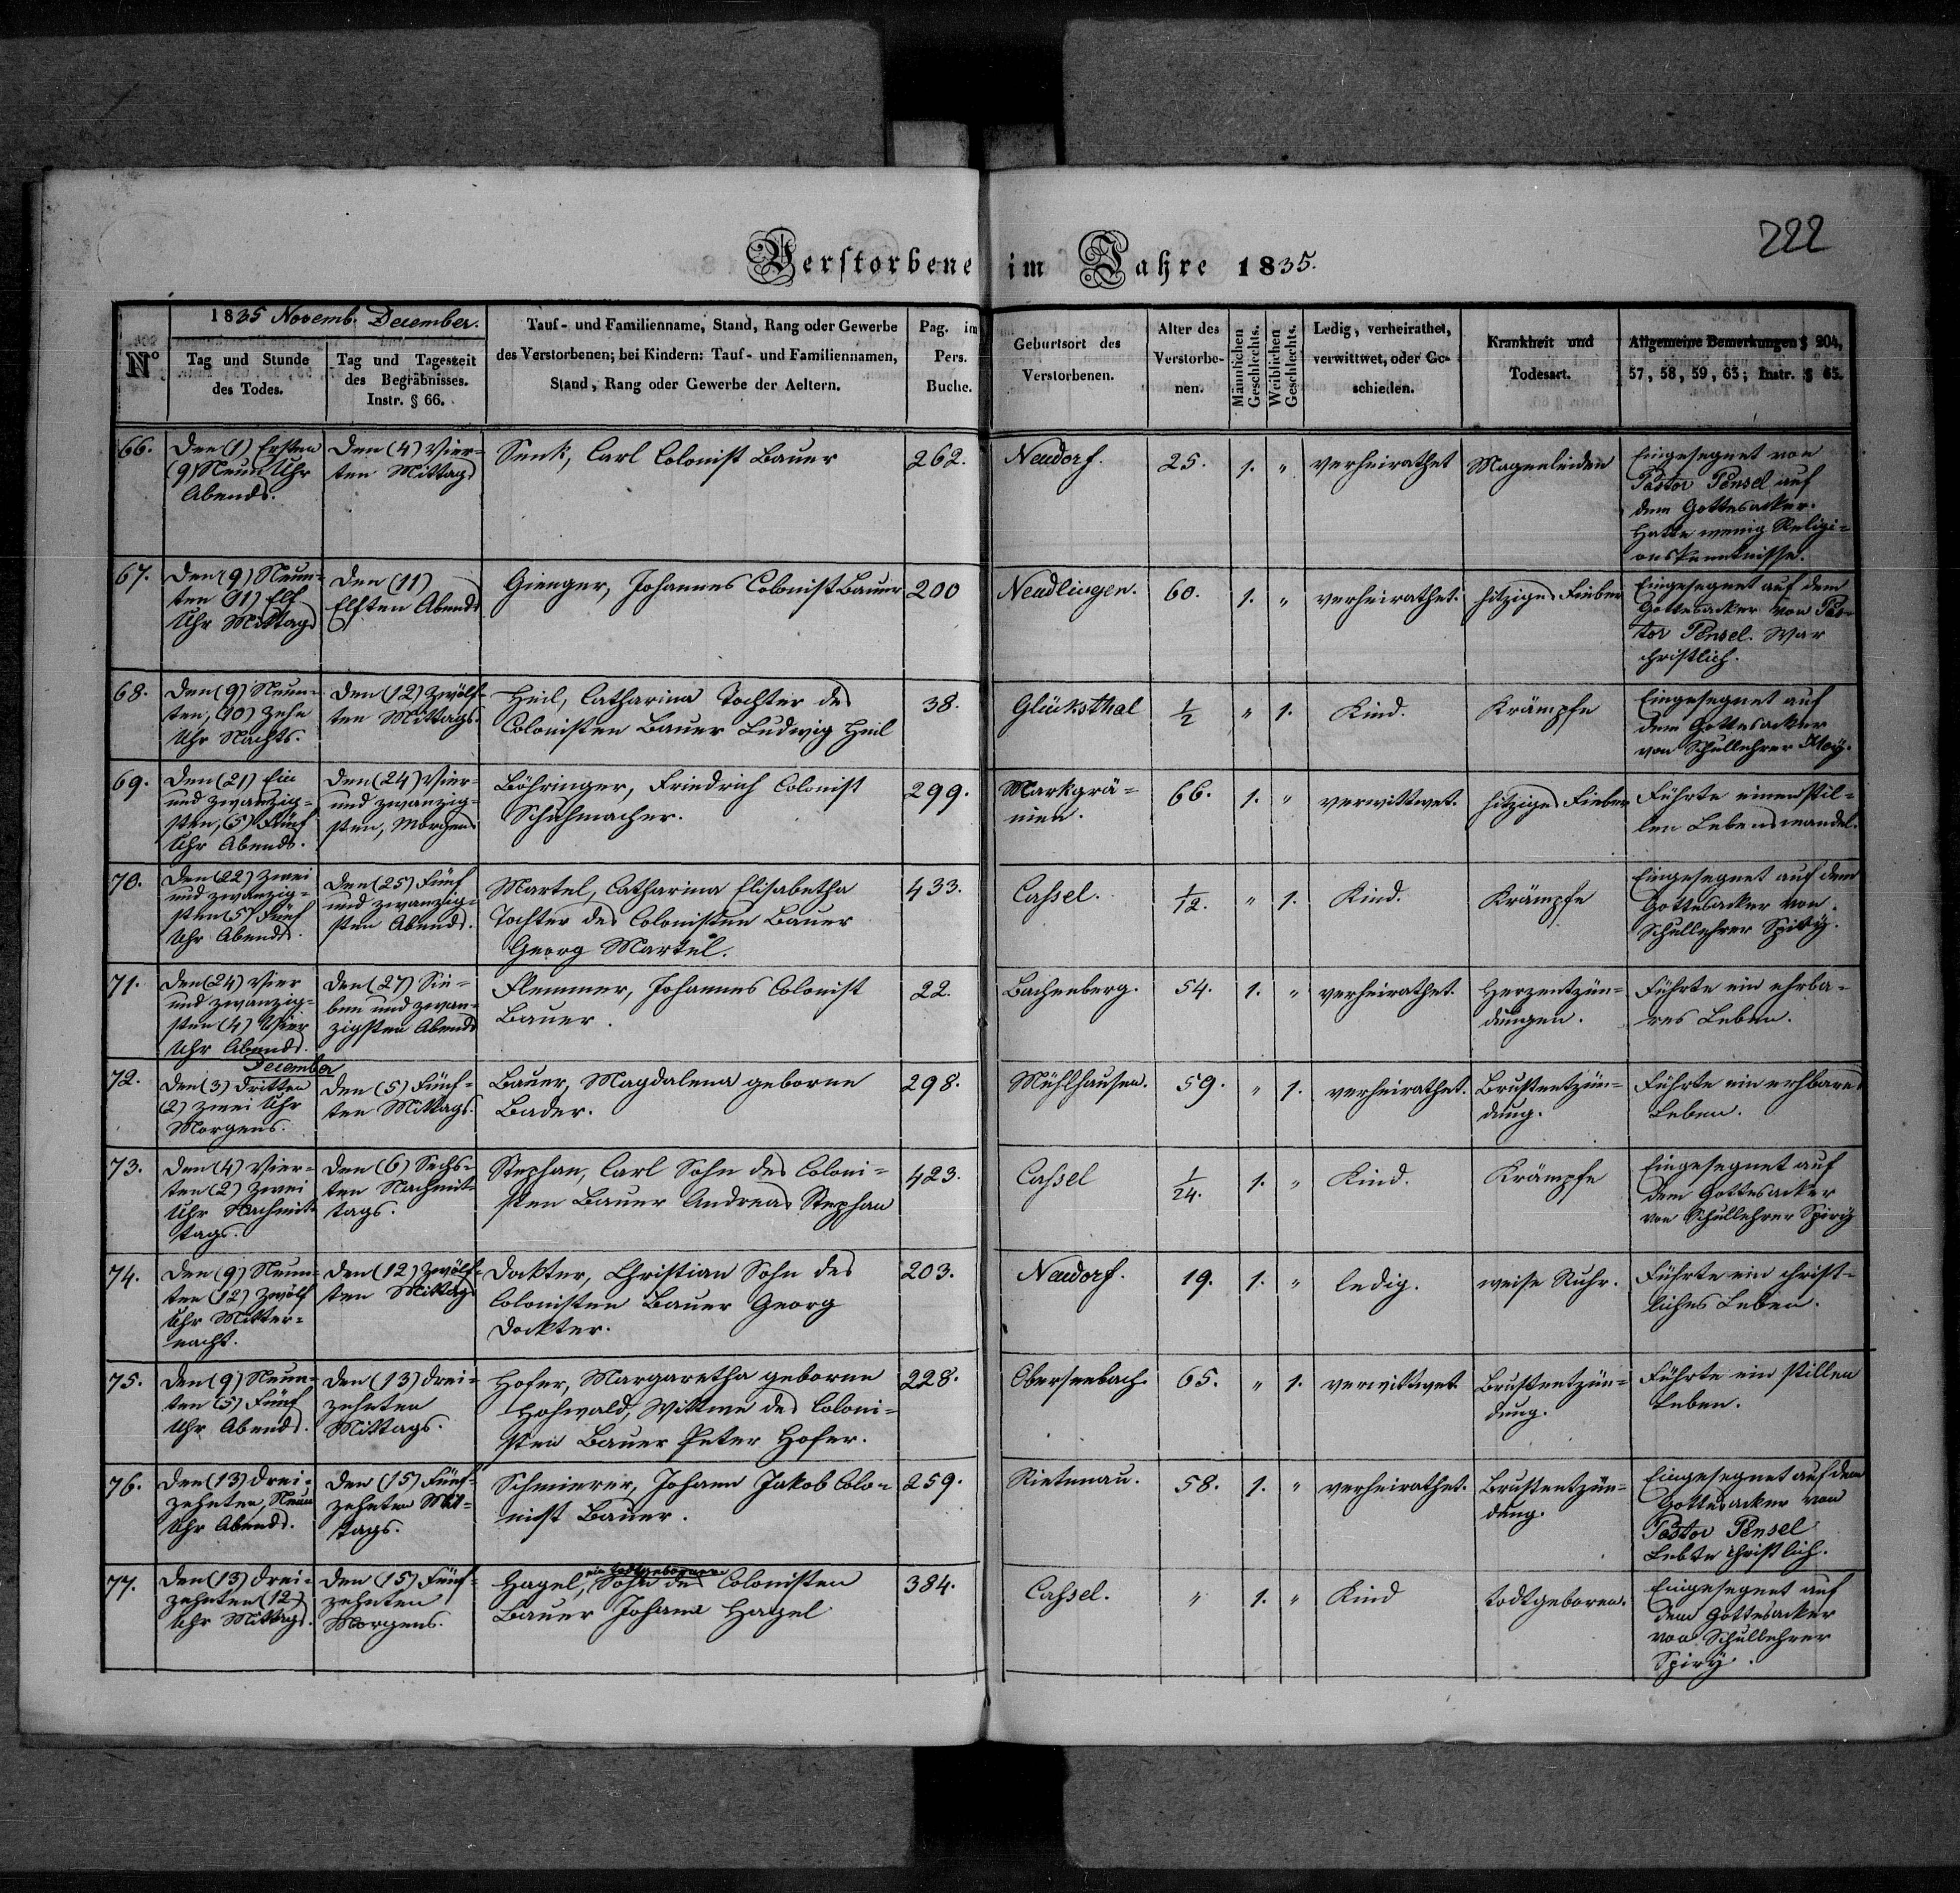 Verstorbene im Jahre 1835.
222
Nº
1835 Novemb. December.
Tag und Stunde
des Todes.
Tag und Tageszeit
des Begräbnisses.
Instr. § 66.
Tauf- und Familienname, Stand, Rang oder Gewerbe
des Verstorbenen; bei Kindern: Tauf- und Familiennamen,
Stand, Rang oder Gewerbe der Aeltern.
Pag. im
Pers.
Buche.
Geburtsort des
Verstorbenen.
Alter des
Verstorbe-
nen.
Männlichen
Geschlechts.
Weiblichen
Geschlechts.
Ledig, verheirathet,
verwittwet, oder Ge-
schieden.
Krankheit und
Todesart.
Allgemeine Bemerkungen § 204,
57, 58, 59, 63; Instr. § 65.
66.
Den (1) Ersten
(9) Neun Uhr
Abends.
Den (4) Vier-
ten Mittags
Senk, Carl Colonist Bauer
262.
Neudorf.
25.
1.
"
verheirathet
Magenleiden
Eingesegnet von
Pastor Pensel auf
dem Gottesacker.
Hatte wenig Religi-
onskenntnisse.
67.
Den (9) Neun-
ten (11) Elf
Uhr Mittags
Den (11)
Elften Abends
Gienger, Johannes Colonist Bauer
200
Neudlingen.
60.
1.
"
verheirathet.
hitziges Fieber
Eingesegnet auf dem
Gottesacker von Pas-
tor Pensel. War
christlich.
68.
Den (9) Neun-
ten, (10) Zehn
Uhr Nachts.
Den (12) Zwölf-
ten Mittags.
Heil, Catharina Tochter des
Colonisten Bauer Ludwig Heil
38.
Glüksthal
1/2
"
1.
Kind.
Krämpfe
Eingesegnet auf
dem Gottesacker
von Schullehrer
69.
Den (21) Ein
und zwanzig-
sten, (5) Fünf
Uhr Abends.
Den (24) Vier-
und zwanzig-
sten, Morgens
Böhringer, Friedrich Colonist
Schuhmacher.
299.
Markgrä-
nien.
66.
1.
"
verwittwet.
hitziges Fieber
Führte einen stil-
len Lebenswandel.
70.
Den (22) Zwei
und zwanzig-
sten (5) Fünf
Uhr Abends.
Den (25) Fünf
und zwanzig-
sten Abends.
Martel, Catharina Elisabetha
Tochter des Colonisten Bauer
Georg Martel.
433.
Cassel.
1/12.
"
1.
Kind.
Krämpfe
Eingesegnet auf dem
Gottesacker von
Schullehrer Spiry.
71.
Den (24) Vier
und zwanzig-
sten (4) Vier
Uhr Abends.
Den (27) Sie-
ben und zwan-
zigsten Abends
Flemmer, Johannes Colonist
Bauer.
22.
Bachenberg.
54.
1.
"
verheirathet.
Herzentzün-
dungen.
Führte ein ehrba-
res Leben.
December
72.
Den (3) Dritten
(2) Zwei Uhr
Morgens.
Den (5) Fünf-
ten Mittags.
Bauer, Magdalena geborne
Bader.
298.
Mühlhausen.
59.
"
1.
verheirathet.
Brustentzün-
dung.
Führte ein erhbares
Leben.
73.
Den (4) Vier-
ten (2) Zwei
Uhr Nachmit-
tags.
Den (6) Sechs-
ten Nachmit-
tags.
Stephan, Carl Sohn des Coloni-
sten Bauer Andreas Stephan
423.
Cassel
1/24.
1.
"
Kind.
Krämpfe
Eingesegnet auf
dem Gottesacker
von Schullehrer Spiry
74.
Den (9) Neun-
ten (12) Zwölf
Uhr Mitter-
nacht.
Den (12) Zwölf-
ten Mittags
Dockter, Christian Sohn des
Colonisten Bauer Georg
Dockter.
203.
Neudorf.
19.
1.
"
ledig.
weise Ruhr.
Führte ein christ-
liches Leben.
75.
Den (9) Neun-
ten (5) Fünf
Uhr Abends.
Den (13) Drei-
zehnten
Mittags.
Hofer, Margaretha geborne
Hohwald, Wittwe des Coloni-
sten Bauer Peter Hofer.
228.
Oberseebach.
65.
"
1.
verwittwet.
Brustentzün-
dung.
Führte ein stillen
Leben.
76.
Den (13) Drei-
zehnten, Neun
Uhr Abends.
Den (15) Fünf-
zehnten Mit-
tags.
Schmierer, Johann Jakob Colo-
nist Bauer.
259.
Rietenau.
58.
1.
"
verheirathet.
Brustentzün-
dung.
Eingesegnet auf dem
Gottesacker von
Pastor Pensel
Lebte christlich.
77.
Den (13) Drei-
zehnten (12)
Uhr Mittags.
Den (15) Fünf-
zehnten
Morgens.
ein todtgeborener
Hagel, Sohn des Colonisten
Bauer Johann Hagel
384.
Cassel.
"
1.
"
Kind
todtgeboren.
Eingesegnet auf
dem Gottesacker
von Schullehrer
Spiry.